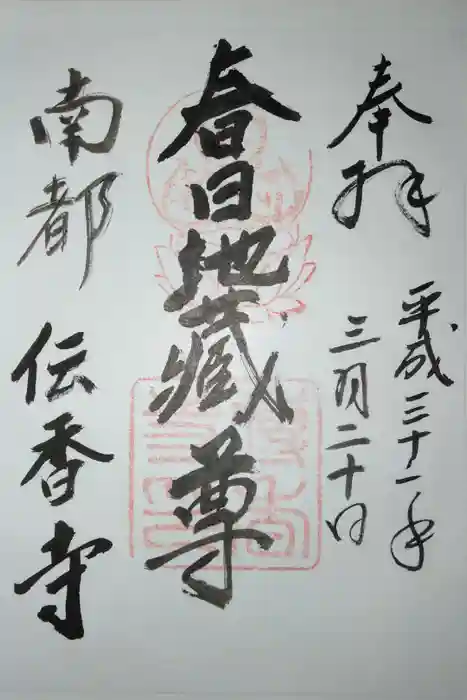 奉拝
平成三十一年
三月二十日
春日地蔵尊
南都
伝香寺